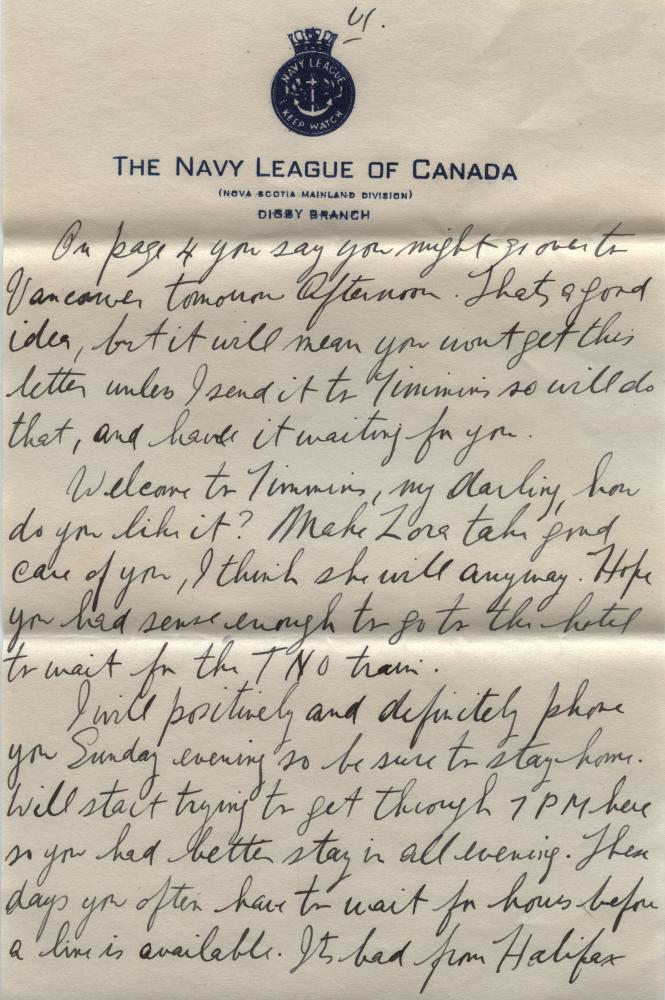 VI.
NAVY LEAGUE
KEEP WATCH
THE NAVY LEAGUE OF CANADA
(NOVA SCOTIA MAINLAND DIVISION)
DIGBY BRANCH
On page 4 you say you might go over to
Vancouver tomorrow afternoon. Thats a good
idea, but it will mean you wont get this
letter unless I send it to Timmins so will do
that, and have it waiting for you.
Welcome to Timmins, my darling, how
do you like it? Make Zora take good
care of you, I think she will anyway. Hope
you had sense enough to go to the hotel
to wait for the T N O train.
I will positively and definitely phone
you Sunday evening so be sure to stay home.
Will start trying to get through 7 PM here
so you had better stay in all evening. These
days you often have to wait for hours before
a line is available. Its bad from Halifax